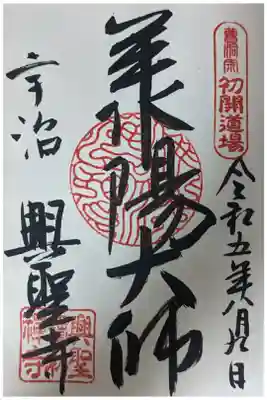 曹洞宗
初開道場
令和五年八月九日
承陽大師
宇治
興聖寺
興聖
禅寺